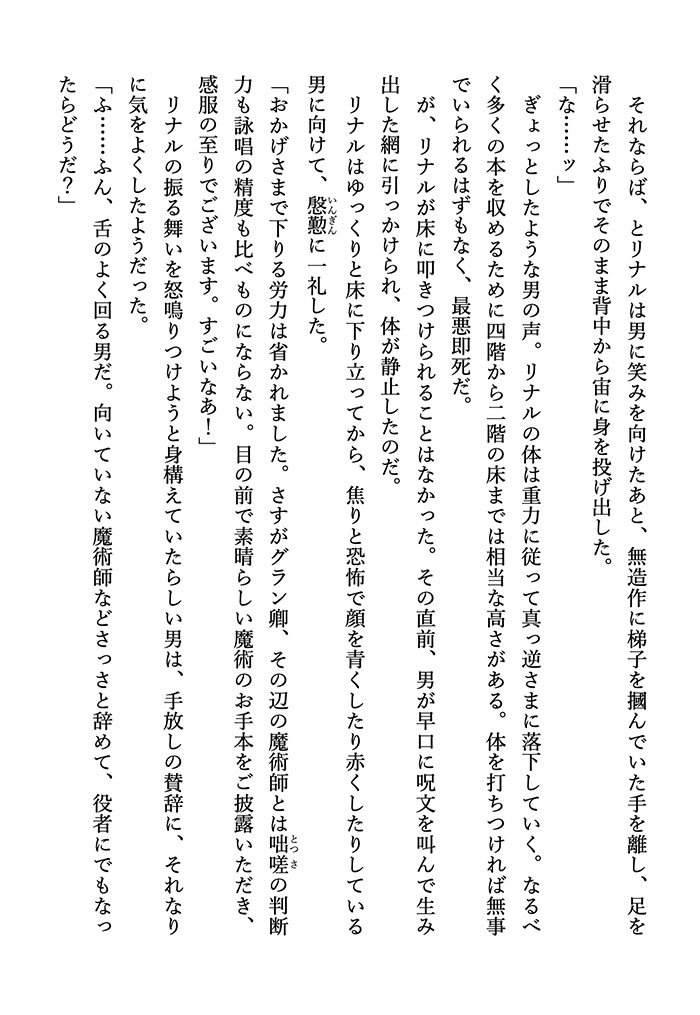 それならば、とリナルは男に笑みを向けたあと、無造作に梯子を摑んでいた手を離し、足を
滑らせたふりでそのまま背中から宙に身を投げ出した。
「な……ッ」
　ぎょっとしたような男の声。リナルの体は重力に従って真っ逆さまに落下していく。なるべ
く多くの本を収めるために四階から二階の床までは相当な高さがある。体を打ちつければ無事
でいられるはずもなく、最悪即死だ。
　が、リナルが床に叩きつけられることはなかった。その直前、男が早口に呪文を叫んで生み
出した網に引っかけられ、体が静止したのだ。
　リナルはゆっくりと床に下り立ってから、焦りと恐怖で顔を青くしたり赤くしたりしている
男に向けて、慇懃いんぎんに一礼した。
「おかげさまで下りる労力は省かれました。さすがグラン卿、その辺の魔術師とは咄嗟とっさの判断
力も詠唱の精度も比べものにならない。目の前で素晴らしい魔術のお手本をご披露いただき、
感服の至りでございます。すごいなあ！」
　リナルの振る舞いを怒鳴りつけようと身構えていたらしい男は、手放しの賛辞に、それなり
に気をよくしたようだった。
「ふ……ふん、舌のよく回る男だ。向いていない魔術師などさっさと辞めて、役者にでもなっ
たらどうだ？」